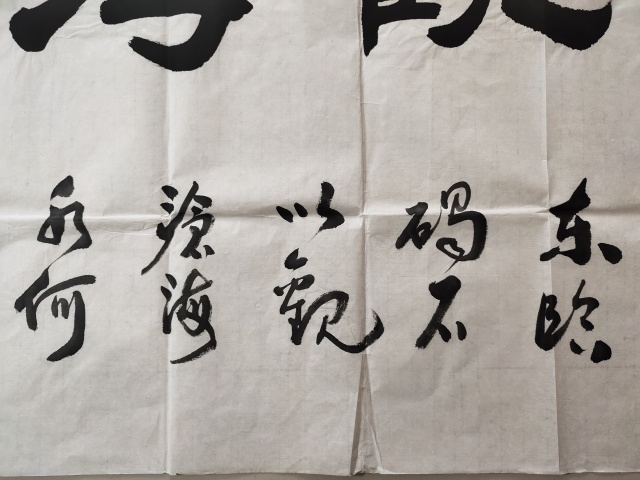 东临
碣石
以觀
滄海
水何